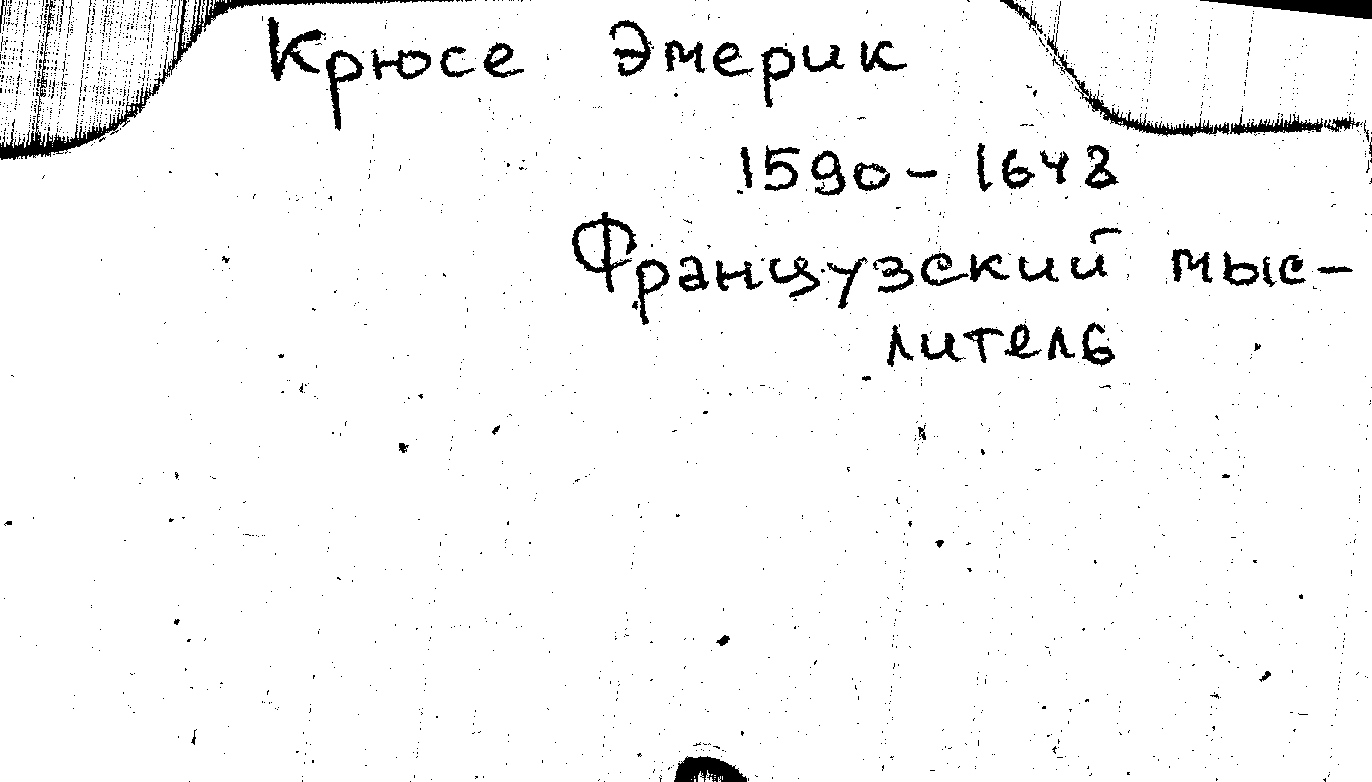 Крюсе Эмерик
1590 – 1648
Французский мыс-
литель